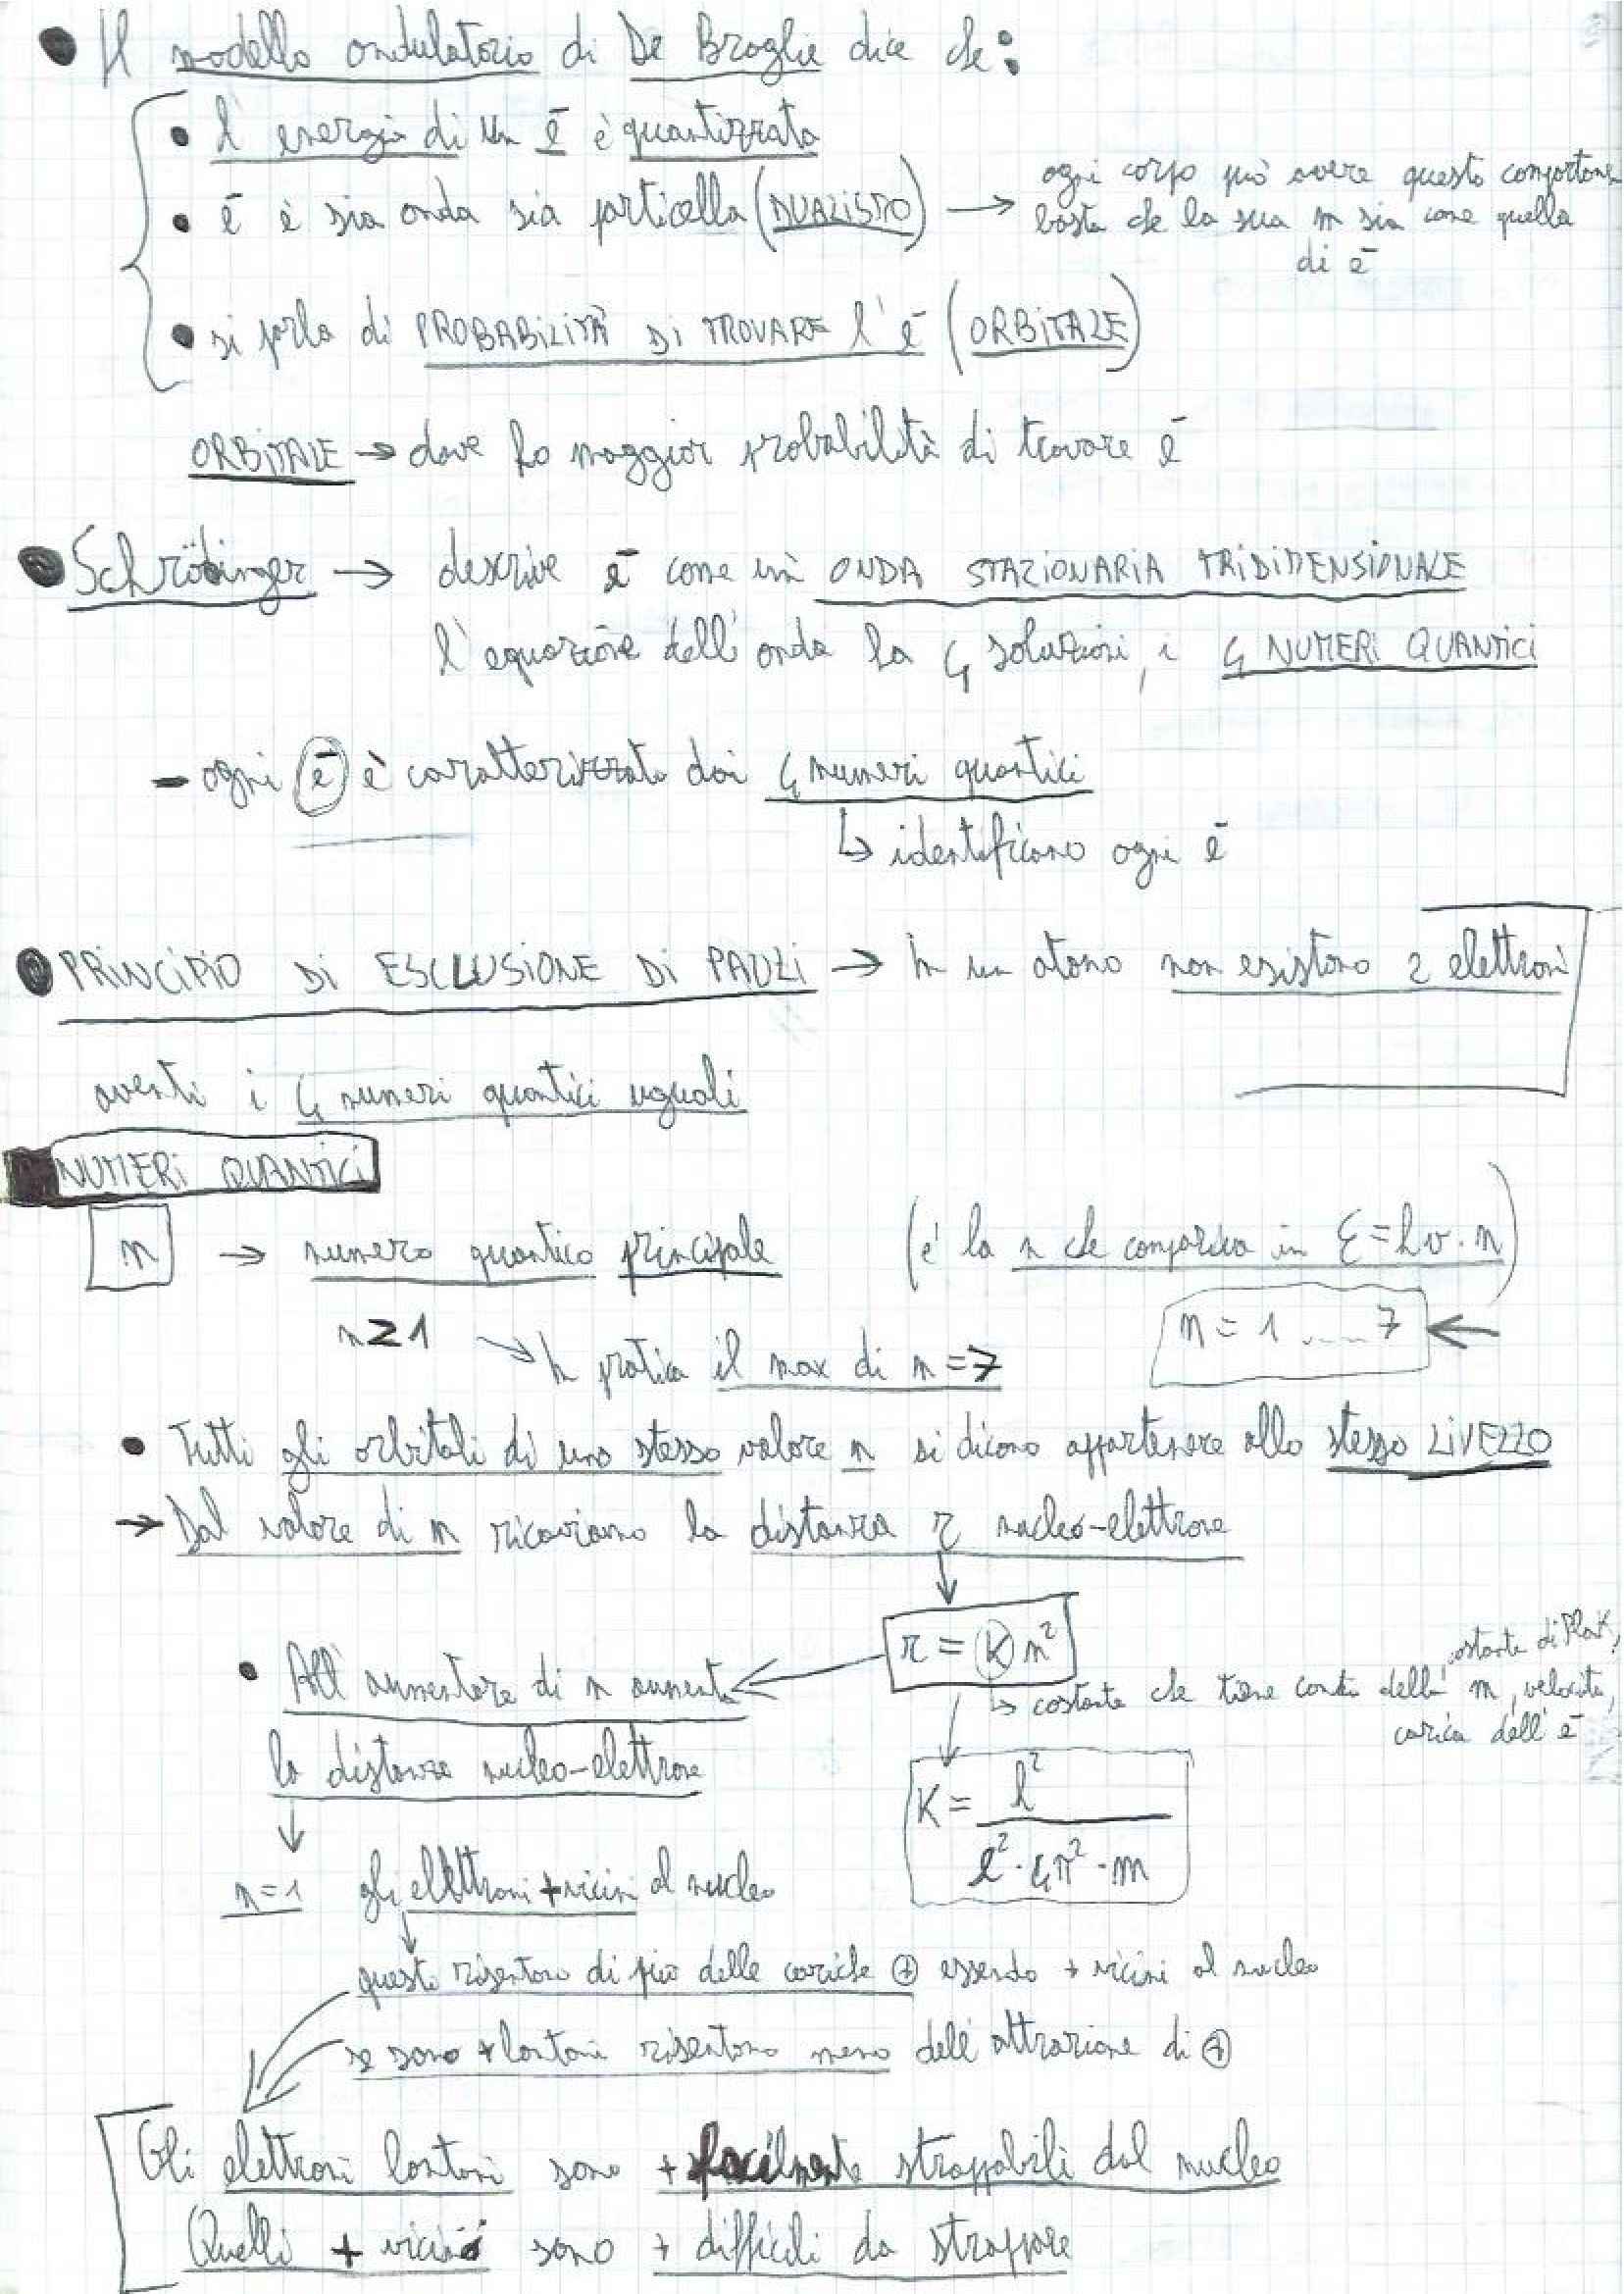 • Il modello ondulatorio di De Broglie dice che:
• l'energia di un e⁻ è quantizzata
• e⁻ è sia onda sia particella (DUALISMO) → ogni corpo può avere questo comportam
basta che la sua m sia come quella
di e⁻
• si parla di PROBABILITÀ DI TROVARE l'e⁻ (ORBITALE)
ORBITALE → dove ho maggior probabilità di trovare e⁻
• Schrödinger → descrive e⁻ come un' ONDA STAZIONARIA TRIDIMENSIONALE
l'equazione dell'onda ha 4 soluzioni, i 4 NUMERI QUANTICI
- ogni e⁻ è caratterizzato dai 4 numeri quantici
↳ identificano ogni e⁻
• PRINCIPIO DI ESCLUSIONE DI PAULI → In un atomo non esistono 2 elettroni
aventi i 4 numeri quantici uguali
NUMERI QUANTICI
n → numero quantico principale (è la n che compariva in E=hν·n)
n≥1 → In pratica il max di n=7 n=1 .... 7 ←
• Tutti gli orbitali di uno stesso valore n si dicono appartenere allo stesso LIVELLO
→ Dal valore di n ricaviamo la distanza r nucleo-elettrone
r = K n²
↳ costante che tiene conto della costante di Plank, m, velocità,
carica dell'e⁻
• All'aumentare di n aumenta
la distanza nucleo-elettrone
K = h² / e²·4π²·m
↓
n=1 gli elettroni +vicini al nucleo
questi risentono di più delle cariche ⊕ essendo + vicini al nucleo
se sono + lontani risentono meno dell'attrazione di ⊕
Gli elettroni lontani sono + facilmente strappabili dal nucleo
Quelli + vicini sono + difficili da strappare